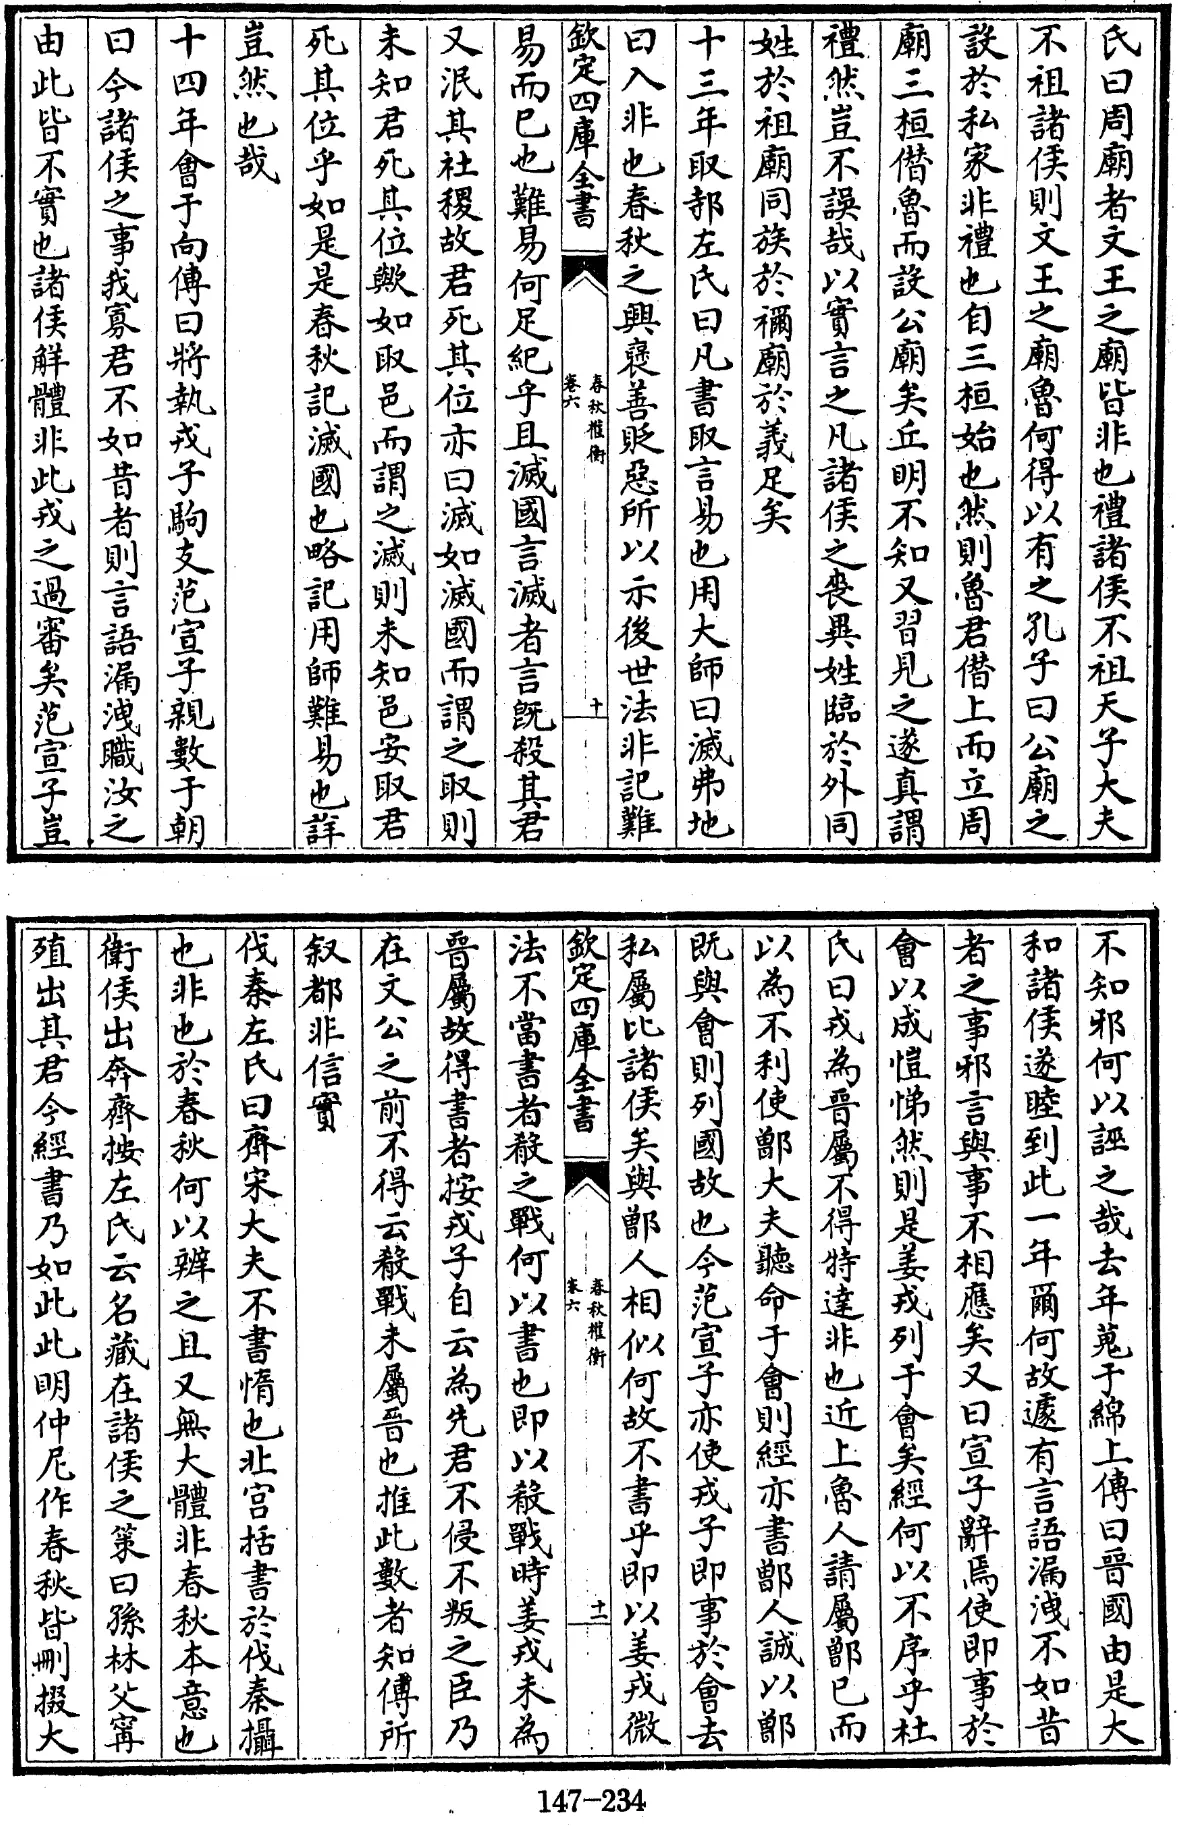 氏曰周廟者文王之廟皆非也禮諸侯不祖天子大夫
不祖諸侯則文王之廟魯何得以有之孔子曰公廟之
設於私家非禮也自三桓始也然則魯君僭上而立周
廟三桓僭魯而設公廟矣丘明不知又習見之遂真謂
禮然豈不誤哉以實言之凡諸侯之喪異姓臨於外同
姓於祖廟同族於禰廟於義足矣
十三年取邿左氏曰凡書取言易也用大師曰滅弗地
曰入非也春秋之興襃善貶惡所以示後世法非記難
欽定四庫全書
春秋權衡
卷六
十
易而已也難易何足紀乎且滅國言滅者言既殺其君
又泯其社稷故君死其位亦曰滅如滅國而謂之取則
未知君死其位歟如取邑而謂之滅則未知邑安取君
死其位乎如是是春秋記滅國也略記用師難易也詳
豈然也哉
十四年會于向傳曰將執戎子駒支范宣子親數于朝
曰今諸侯之事我寡君不如昔者則言語漏洩職汝之
由此皆不實也諸侯解體非此戎之過審矣范宣子豈
不知邪何以誣之哉去年蒐于綿上傳曰晉國由是大
和諸侯遂睦到此一年爾何故遽有言語漏洩不如昔
者之事邪言與事不相應矣又曰宣子辭焉使即事於
會以成愷悌然則是姜戎列于會矣經何以不序乎杜
氏曰戎為晉屬不得特達非也近上魯人請屬鄫已而
以為不利使鄫大夫聽命于會則經亦書鄫人誠以鄫
既與會則列國故也今范宣子亦使戎子即事於會去
私屬比諸侯矣與鄫人相似何故不書乎即以姜戎微
欽定四庫全書
春秋權衡
卷六
十一
法不當書者殽之戰何以書也即以殽戰時姜戎未為
晉屬故得書者按戎子自云為先君不侵不叛之臣乃
在文公之前不得云殽戰未屬晉也推此數者知傳所
叙都非信實
伐秦左氏曰齊宋大夫不書惰也北宮括書於伐秦攝
也非也於春秋何以辨之且又無大體非春秋本意也
衛侯出奔齊按左氏云名藏在諸侯之策曰孫林父甯
殖出其君今經書乃如此此明仲尼作春秋皆刪掇大
147-234